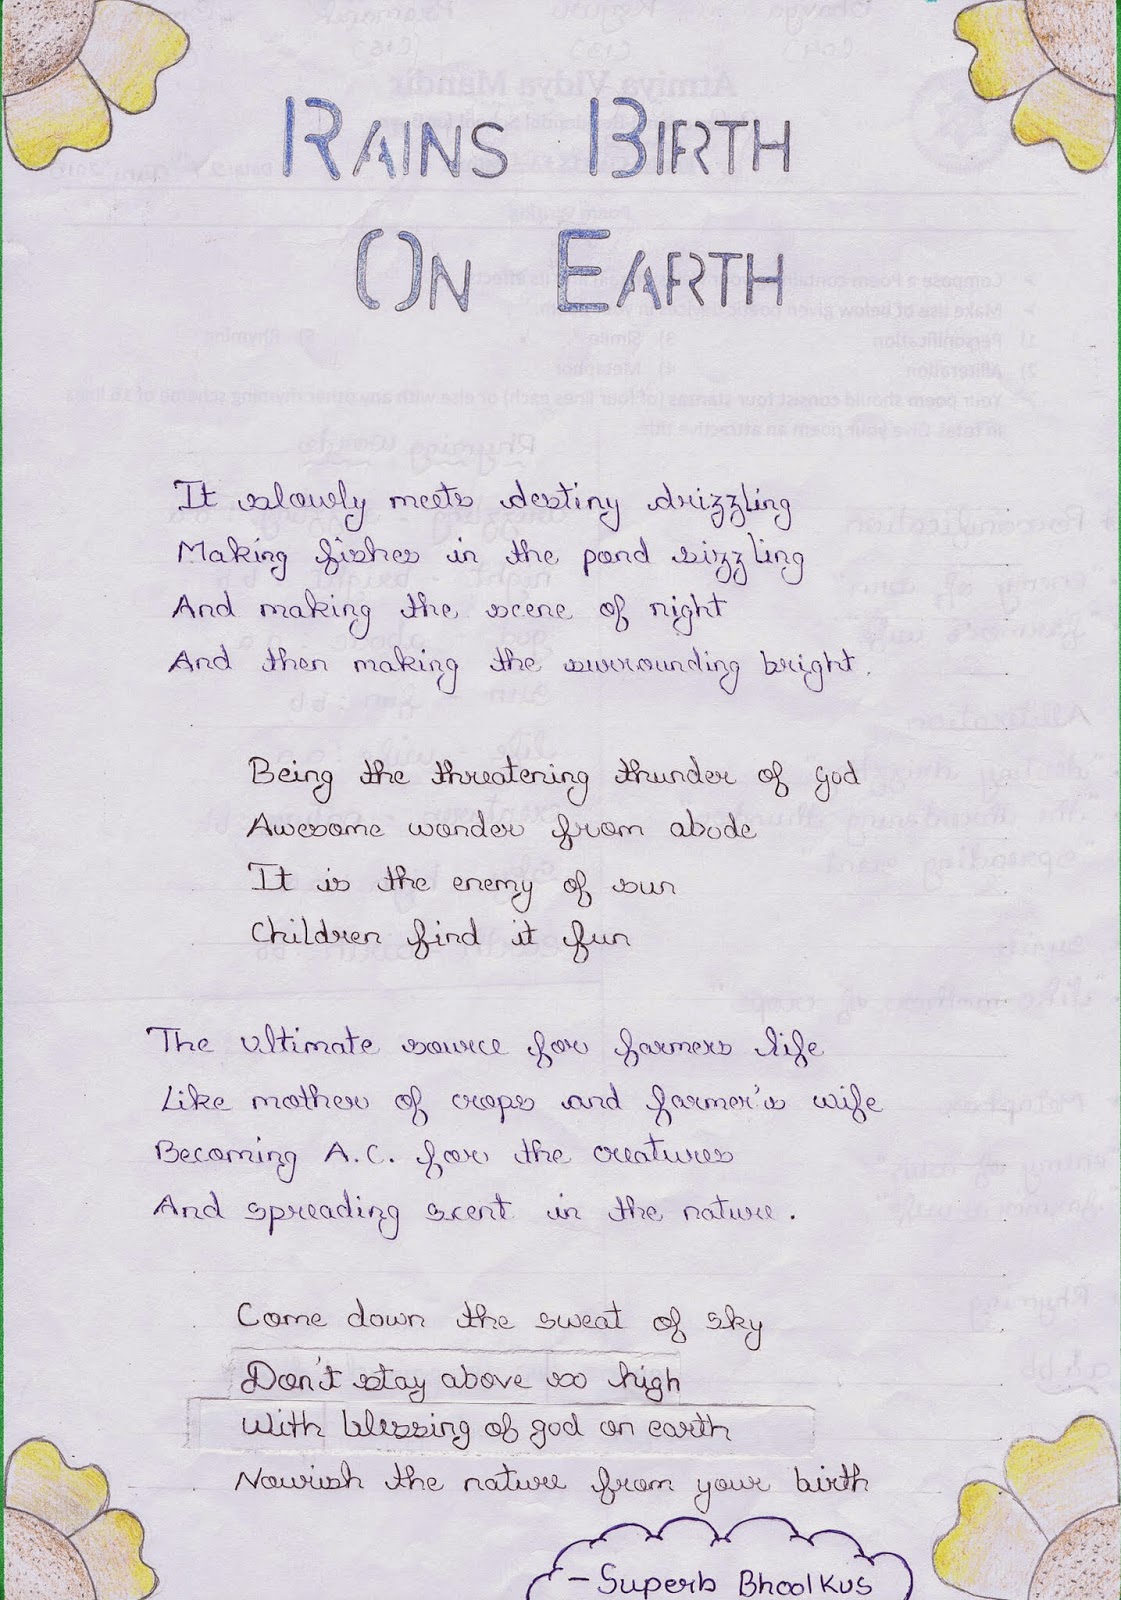 RAINS BIRTH
ON EARTH
It slowly meets destiny drizzling
Making fishes in the pond sizzling
And making the scene of night
And then making the surrounding bright.
Being the threatening thunder of god
Awesome wonder from abode
It is the enemy of sun
Children find it fun
The ultimate source for farmers life
Like mother of crops and farmer's wife
Becoming A.C. for the creatures
And spreading scent in the nature.
Come down the sweat of sky
Don't stay above so high
With blessing of god on earth
Nourish the nature from your birth
- Superb Bhoolkus